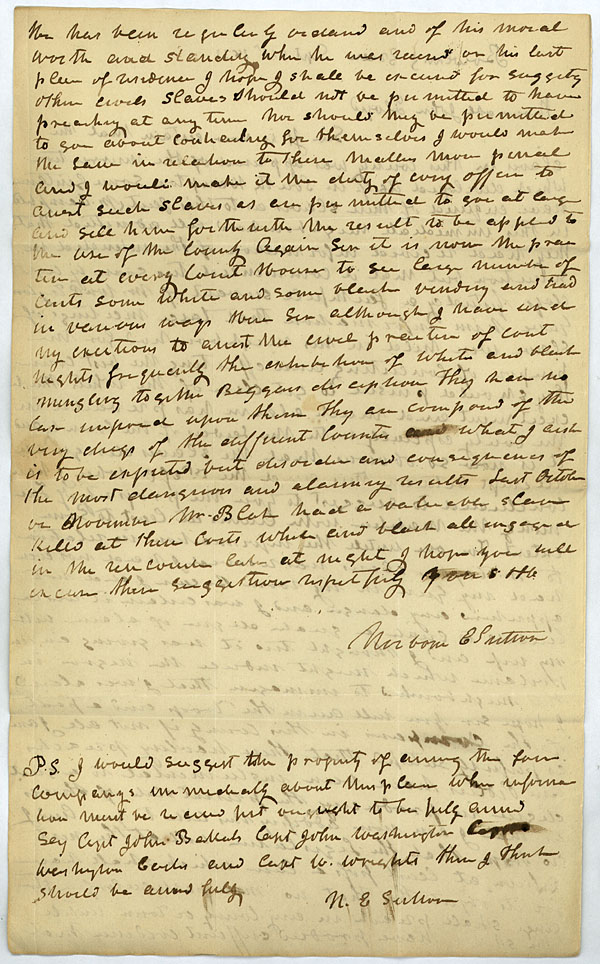 He has been regularly ordaind and of his moral
worth and standing when he was raised or his last
place of residence I hope I shall be excused for suggesting
other evils Slaves should not be permitted to have
preaching at any time Nor should they be permitted
to goe about contracting for themselves I would make
the Law in relation to these matters more penal
and I would make it the duty of every officer to
arrest such slaves as are permitted to goe at large
and sell them forthwith the result to be applied to
the use of the County Again Sir it is now the prac
tice at every Court House to see large number of
Carts some white and some black vending and trad
in various ways there Sir although I have used
my exertions to arrest the evil practice of Court
nights frequently the exhibition of white and black
mingling together Beggars discription they have no
Law imposed upon them They are composed of the
very dregs of the different Counties and what I ask
is to be expected but disorder and consequences of
the most dangerous and alarming results Last October
or November Mr. Blak had a valuable slave
killed at these Carts white and black all engaged
in the rencounter late at night I hope you will
excuse these suggestions respectfully yours &c
Norborne E Sutton
P.S. I would suggest the propriety of arming the four
companys immediately about this place when informa
tion must be received first ought to be fully armed
Say Capt John Capt John Washington
Washington and Capt W. Wrights these I think
should be armed fully
N. E Sutton